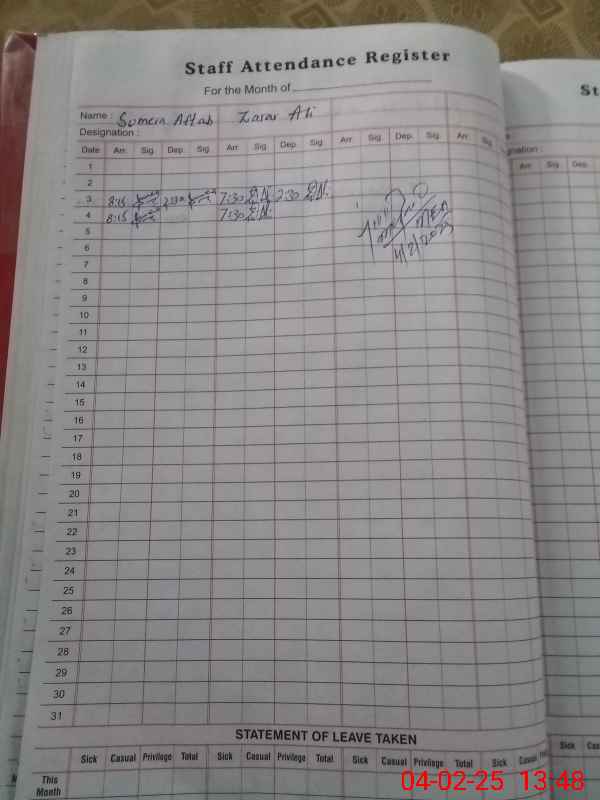 Staff Attendance Register
St
For the Month of
Name : Sumera Aftab Zarar Ali
Designation :
gnation :
Date Arr. Sig. Dep. Sig. Arr. Sig. Dep. Sig. Arr. Sig. Dep. Sig. Arr. Sig. Arr. Sig. Dep.
1
2
3 8:15 7:30 2:30
4 8:15 7:30
5
6
7
4/2/2025
8
9
10
11
12
13
14
15
16
17
18
19
20
21
22
23
24
25
26
27
28
29
30
31
STATEMENT OF LEAVE TAKEN
Sick Casual Privilege Total Sick Casual Privilege Total Sick Casual Privilege Total Sick Casual Sick Casual
This
Month
04-02-25 13:48